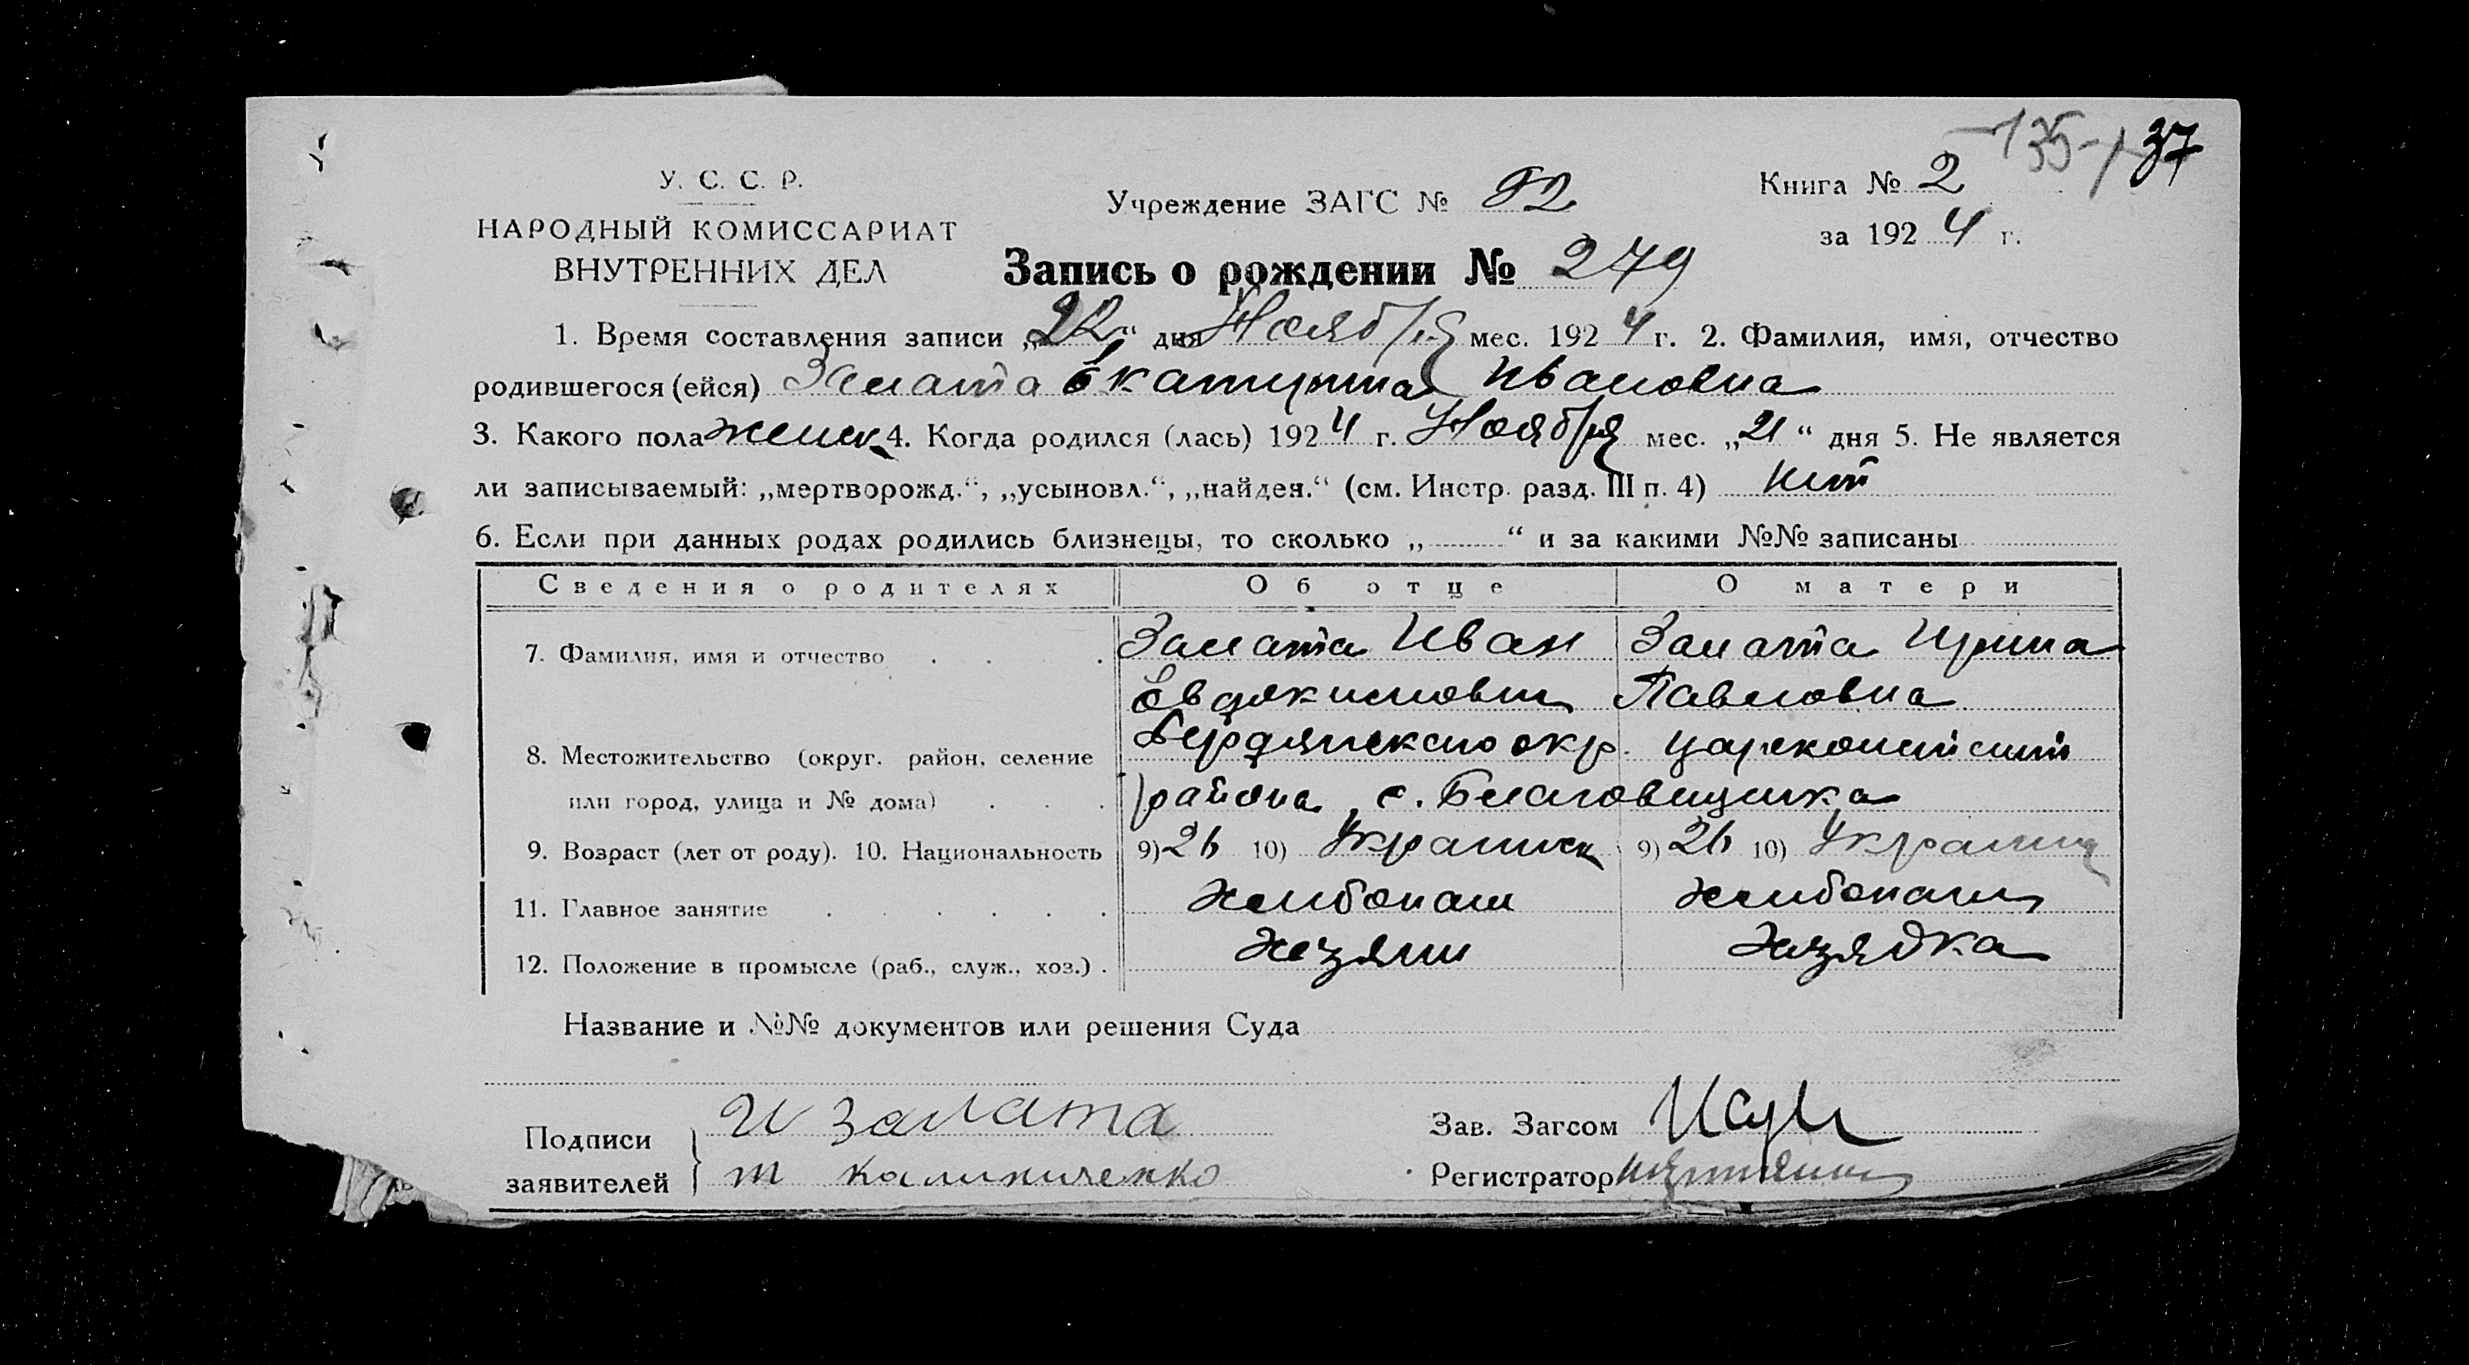 -135-/ 37
У. С. С. Р.
НАРОДНЫЙ КОМИССАРИАТ
ВНУТРЕННИХ ДЕЛ
Учреждение ЗАГС № 82
Книга № 2
за 1924 г.
Запись о рождении № 279
1. Время составления записи „22“ дня Ноября мес. 1924 г. 2. Фамилия, имя, отчество
родившегося (ейся) Замата Екатерина Ивановна
3. Какого пола женск. 4. Когда родился (лась) 1924 г. Ноября мес. „21“ дня 5. Не является
ли записываемый: „мертворожд.“, „усыновл.“, „найден.“ (см. Инстр. разд. III п. 4) нет
6. Если при данных родах родились близнецы, то сколько „ “ и за какими №№ записаны
Сведения о родителях Об отце О матери
7. Фамилия, имя и отчество Замата Иван Замата Ирина
Евдокимович Павловна
8. Местожительство (округ. район, селение Бердянского окр. Цареконст
или город, улица и № дома) района, с. Благовещенка
9. Возраст (лет от роду). 10. Национальность 9) 26 10) Украинск 9) 26 10) Украинц
11. Главное занятие хлебопаш хлебопаш
12. Положение в промысле (раб., служ., хоз.) Хозяин Хозядка
Название и №№ документов или решения Суда
Подписи заявителей И Замата
т Калиниченко
Зав. Загсом
Регистратор